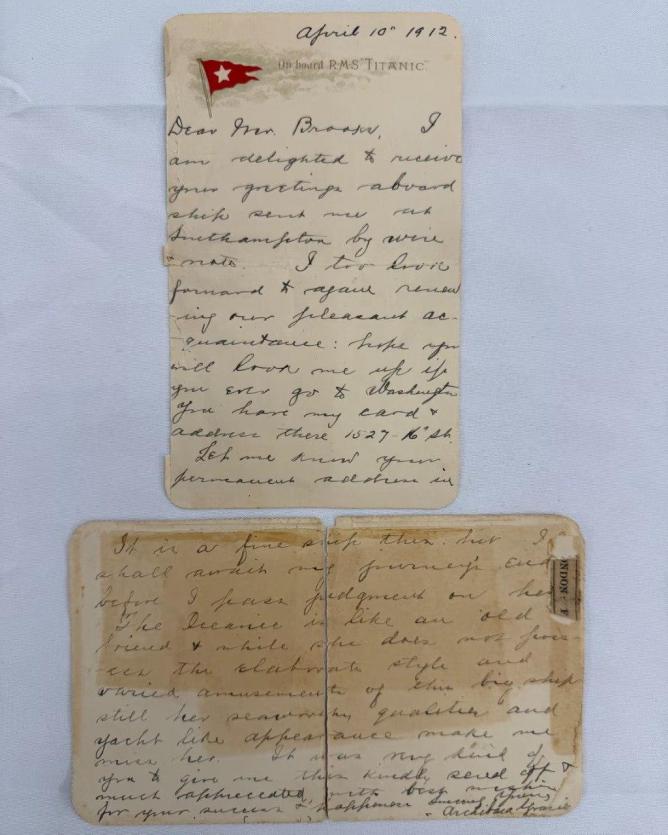 April 10" 1912.
On board R.M.S. "TITANIC."
Dear Mr. Brooks, I
am delighted to receive
your greetings aboard
ship sent me at
Southampton by wire
& note. I too look
forward to again renew
ing our pleasant ac-
quaintance: hope you
will look me up if
you ever go to Washington
You have my card &
address there 1527-16" St.
Let me know your
permanent address in
It is a fine ship this. but I
shall await my journey's end
before I pass judgment on her
The Oceanic is like an old
friend & while she does not poss-
ess the elaborate style and
varied amusement of this big ship
still her seaworthy qualities and
yacht like appearance make me
miss her. It was very kind of
you to give me this kindly send off &
much appreciated with best wishes
for your success & happiness Sincerely Yours
Archibald Gracie
ONDON.